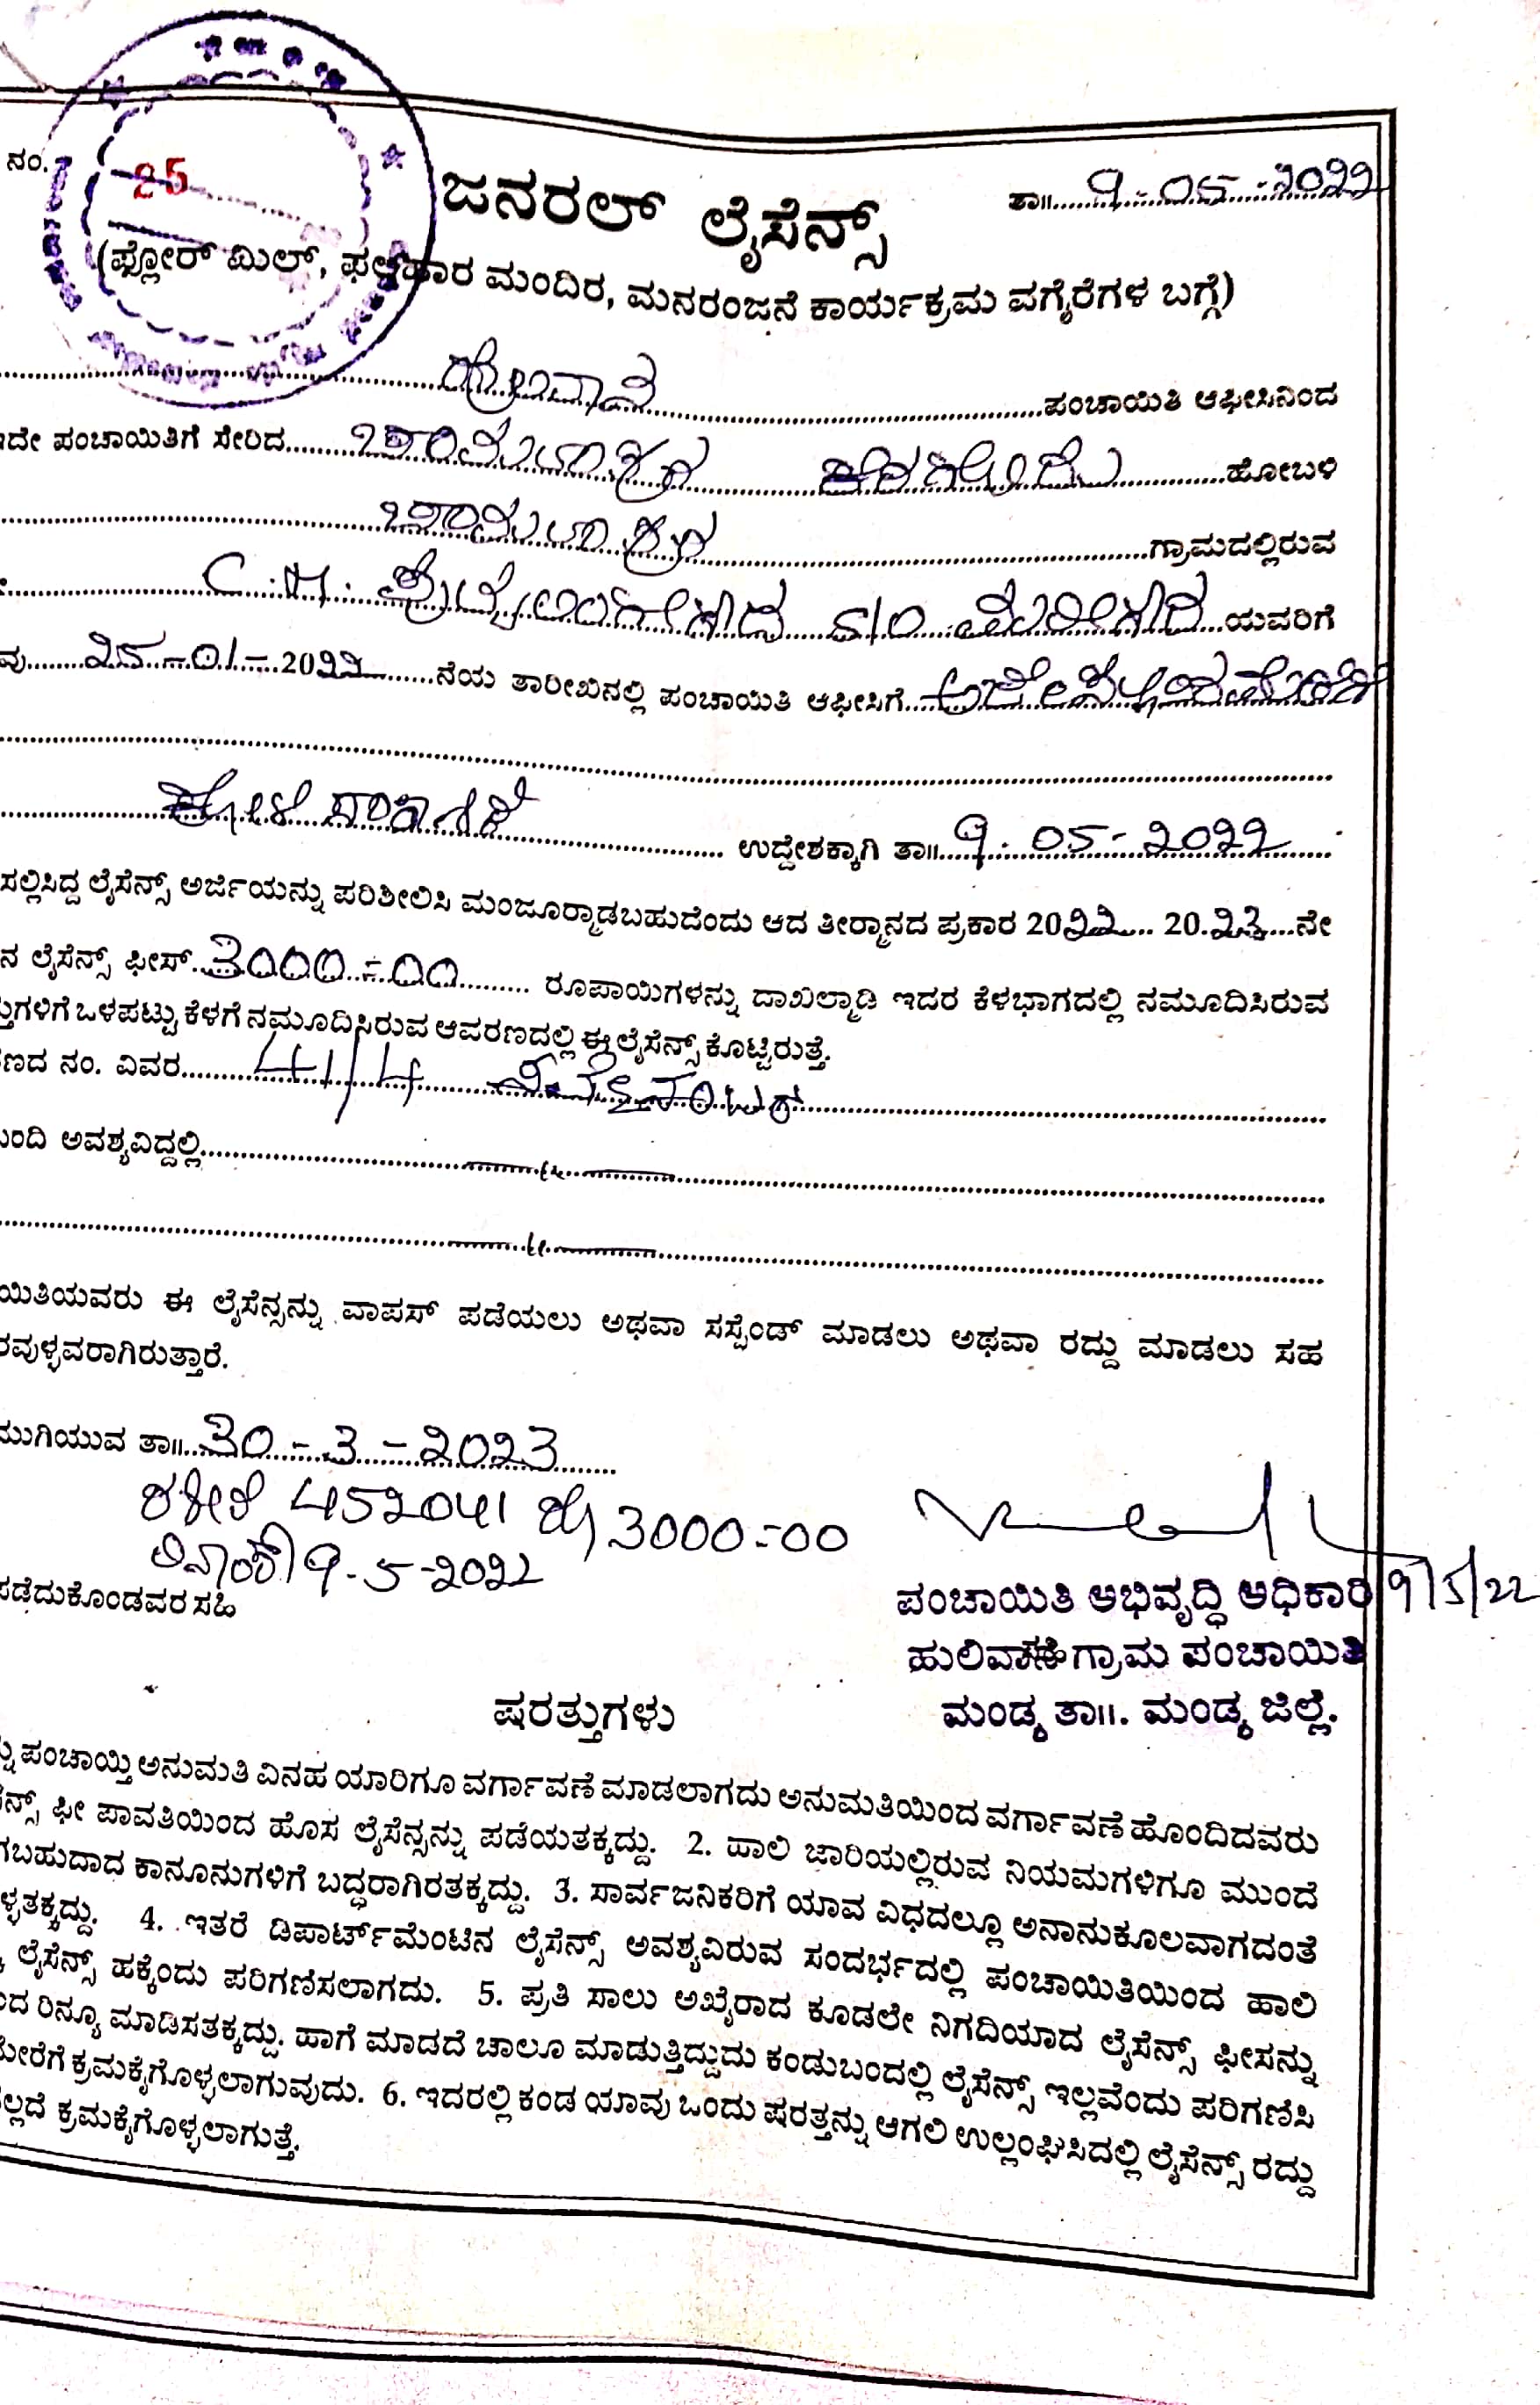 ನಂ. 25
ತಾ॥ 9-05-2022
ಜನರಲ್ ಲೈಸೆನ್ಸ್
(ಫ್ಲೋರ್ ಮಿಲ್, ಫಲಹಾರ ಮಂದಿರ, ಮನರಂಜನೆ ಕಾರ್ಯಕ್ರಮ ವಗೈರೆಗಳ ಬಗ್ಗೆ)
ಪಂಚಾಯಿತಿ ಆಫೀಸಿನಿಂದ
ಇದೇ ಪಂಚಾಯಿತಿಗೆ ಸೇರಿದ ಹೋಬಳಿ
ಗ್ರಾಮದಲ್ಲಿರುವ
C.M. S/O ಯವರಿಗೆ
ವು 25-01-2022 ನೆಯ ತಾರೀಖಿನಲ್ಲಿ ಪಂಚಾಯಿತಿ ಆಫೀಸಿಗೆ
ಕೋಳಿ ಸಾಕಾಣಿಕೆ ಉದ್ದೇಶಕ್ಕಾಗಿ ತಾ॥ 9-05-2022
ಸಲ್ಲಿಸಿದ್ದ ಲೈಸೆನ್ಸ್ ಅರ್ಜಿಯನ್ನು ಪರಿಶೀಲಿಸಿ ಮಂಜೂರ್‍ಮಾಡಬಹುದೆಂದು ಆದ ತೀರ್‍ಮಾನದ ಪ್ರಕಾರ 2022 20.23 ನೇ
ನ ಲೈಸೆನ್ಸ್ ಫೀಸ್ 3000=00 ರೂಪಾಯಿಗಳನ್ನು ದಾಖಲ್ಮಾಡಿ ಇದರ ಕೆಳಭಾಗದಲ್ಲಿ ನಮೂದಿಸಿರುವ
ತ್ತುಗಳಿಗೆ ಒಳಪಟ್ಟು ಕೆಳಗೆ ನಮೂದಿಸಿರುವ ಆವರಣದಲ್ಲಿ ಈ ಲೈಸೆನ್ಸ್ ಕೊಟ್ಟಿರುತ್ತೆ.
ಣದ ನಂ. ವಿವರ 41/4
ಬಂದಿ ಅವಶ್ಯವಿದ್ದಲ್ಲಿ —〃—
—〃—
ಯಿತಿಯವರು ಈ ಲೈಸೆನ್ಸನ್ನು ವಾಪಸ್ ಪಡೆಯಲು ಅಥವಾ ಸಸ್ಪೆಂಡ್ ಮಾಡಲು ಅಥವಾ ರದ್ದು ಮಾಡಲು ಸಹ
ರವುಳ್ಳವರಾಗಿರುತ್ತಾರೆ.
ಮುಗಿಯುವ ತಾ॥ 30-3-2023
ರಶೀದಿ 452041 ರೂ 3000=00
ದಿನಾಂಕ 9-5-2022
ಪಡೆದುಕೊಂಡವರ ಸಹಿ
9/5/22
ಪಂಚಾಯಿತಿ ಅಭಿವೃದ್ಧಿ ಅಧಿಕಾರಿ
ಹುಲಿವಾನ ಗ್ರಾಮ ಪಂಚಾಯಿತಿ
ಮಂಡ್ಯ ತಾ॥. ಮಂಡ್ಯ ಜಿಲ್ಲೆ.
ಷರತ್ತುಗಳು
ನ್ನು ಪಂಚಾಯ್ತಿ ಅನುಮತಿ ವಿನಹ ಯಾರಿಗೂ ವರ್ಗಾವಣೆ ಮಾಡಲಾಗದು ಅನುಮತಿಯಿಂದ ವರ್ಗಾವಣೆ ಹೊಂದಿದವರು
ಸೆನ್ಸ್ ಫೀ ಪಾವತಿಯಿಂದ ಹೊಸ ಲೈಸೆನ್ಸನ್ನು ಪಡೆಯತಕ್ಕದ್ದು. 2. ಹಾಲಿ ಜಾರಿಯಲ್ಲಿರುವ ನಿಯಮಗಳಿಗೂ ಮುಂದೆ
ಗಬಹುದಾದ ಕಾನೂನುಗಳಿಗೆ ಬದ್ಧರಾಗಿರತಕ್ಕದ್ದು. 3. ಸಾರ್ವಜನಿಕರಿಗೆ ಯಾವ ವಿಧದಲ್ಲೂ ಅನಾನುಕೂಲವಾಗದಂತೆ
ಳ್ಳತಕ್ಕದ್ದು. 4. ಇತರೆ ಡಿಪಾರ್ಟ್‌ಮೆಂಟಿನ ಲೈಸೆನ್ಸ್ ಅವಶ್ಯವಿರುವ ಸಂದರ್ಭದಲ್ಲಿ ಪಂಚಾಯಿತಿಯಿಂದ ಹಾಲಿ
ಲೈಸೆನ್ಸ್ ಹಕ್ಕೆಂದು ಪರಿಗಣಿಸಲಾಗದು. 5. ಪ್ರತಿ ಸಾಲು ಅಖೈರಾದ ಕೂಡಲೇ ನಿಗದಿಯಾದ ಲೈಸೆನ್ಸ್ ಫೀಸನ್ನು
ಂದ ರಿನ್ಯೂ ಮಾಡಿಸತಕ್ಕದ್ದು. ಹಾಗೆ ಮಾಡದೆ ಚಾಲೂ ಮಾಡುತ್ತಿದ್ದುದು ಕಂಡುಬಂದಲ್ಲಿ ಲೈಸೆನ್ಸ್ ಇಲ್ಲವೆಂದು ಪರಿಗಣಿಸಿ
ಮೇರೆಗೆ ಕ್ರಮಕೈಗೊಳ್ಳಲಾಗುವುದು. 6. ಇದರಲ್ಲಿ ಕಂಡ ಯಾವು ಒಂದು ಷರತ್ತನ್ನು ಆಗಲಿ ಉಲ್ಲಂಘಿಸಿದಲ್ಲಿ ಲೈಸೆನ್ಸ್ ರದ್ದು
ಲ್ಲದೆ ಕ್ರಮಕೈಗೊಳ್ಳಲಾಗುತ್ತೆ.